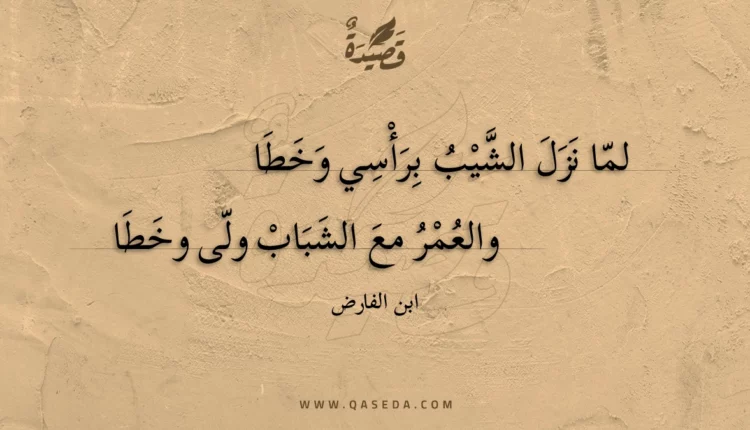 قَصِيْدَةٌ
لمّا نَزَلَ الشَّيْبُ بِرَأْسِي وَخَطَا
والعُمْرُ معَ الشَبَابْ ولّى وخَطَا
ابن الفارض
WWW.QASEDA.COM